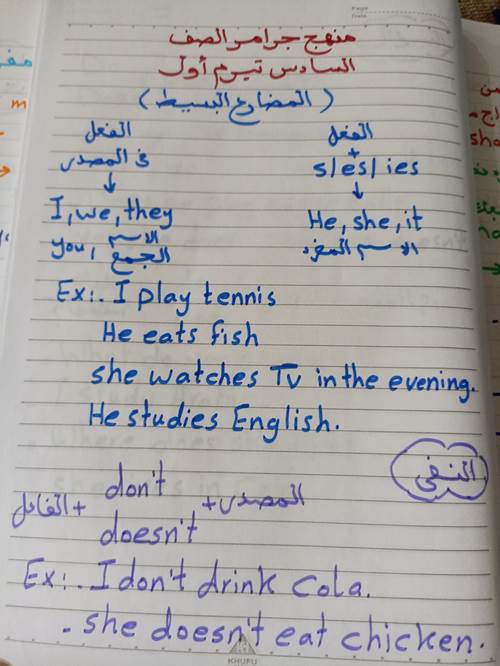 Page
Date
منهج جرامر الصف
السادس تيرم أول
( المضارع البسيط )
الفعل
+
s/es/ies
↓
He, she, it
الاسم المفرد
الفعل
فى المصدر
↓
I, we, they
you, الاسم الجمع
Ex:. I play tennis
He eats fish
she watches Tv in the evening.
He studies English.
النفى
الفاعل + don't + المصدر
doesn't
Ex:. I don't drink cola.
. she doesn't eat chicken.
KHUFU